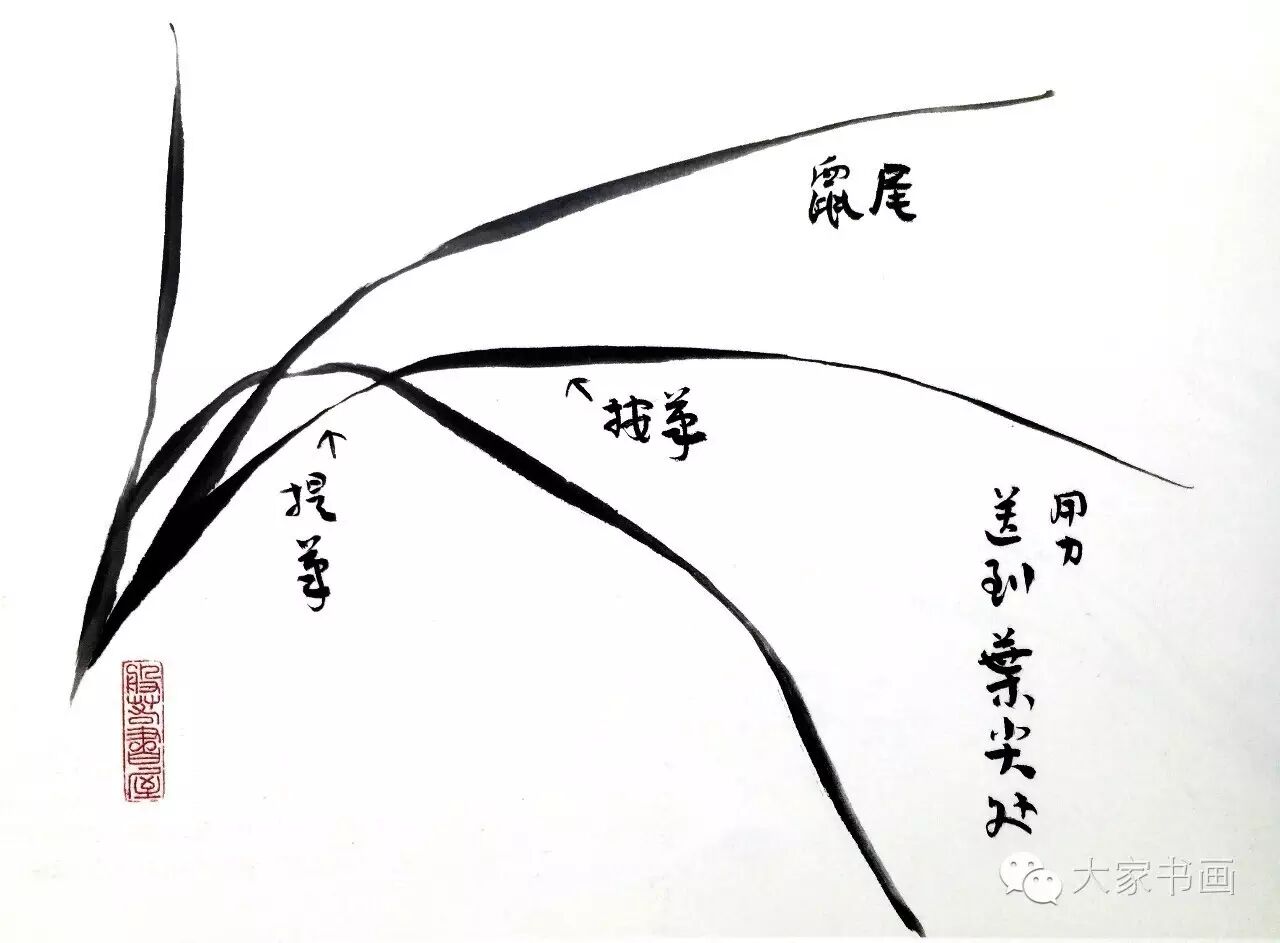 鼠尾
按笔
提笔
用力
送到葉尖处
大家书画